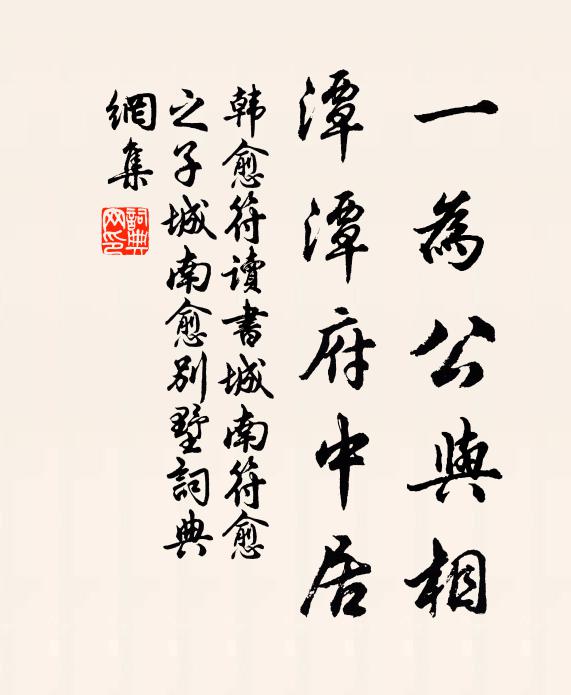 一為公與相
潭潭府中居
韩愈符讀書城南符愈
之子城南愈别墅詞典
網集
詞典网印